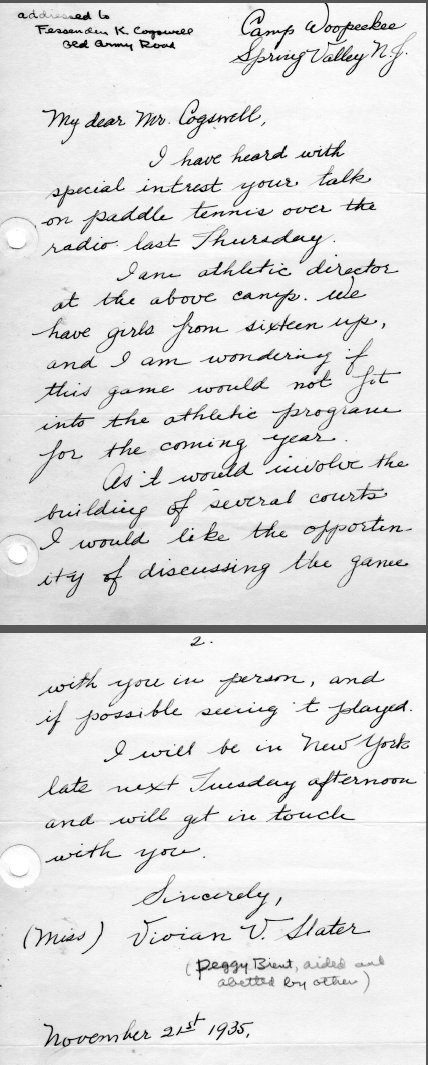 addressed to
Fessenden K. Cogswell
Old Army Road
Camp Woopeekee
Spring Valley N.J.
My dear Mr. Cogswell,
I have heard with
special intrest your talk
on paddle tennis over the
radio last Thursday.
I am athletic director
at the above camp. We
have girls from sixteen up,
and I am wondering if
this game would not fit
into the athletic program
for the coming year.
As 't would involve the
building of several courts
I would like the opportun-
ity of discussing the game
2.
with you in person, and
if possible seeing 't played.
I will be in New York
late next Tuesday afternoon
and will get in touch
with you.
Sincerely,
(Miss) Vivian V. Slater
(Peggy Brent, aided and
abetted by others)
November 21st 1935.